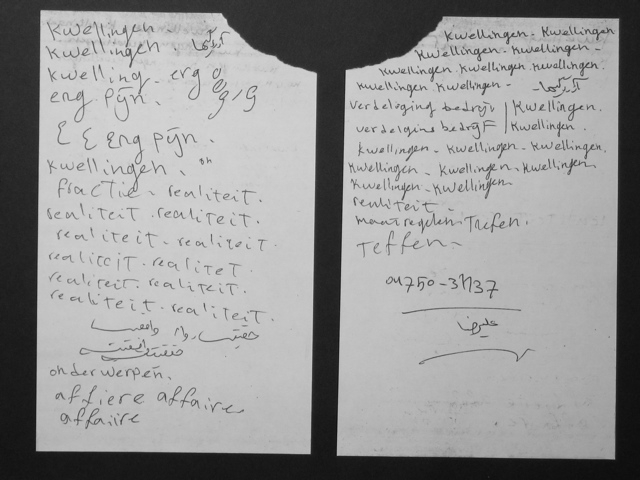 Kwellingen
Kwellingen. آزارگیها
Kwelling. erg
eng pijn. g/g
eng pijn.
Kwellingen. on
fractie. realiteit.
realiteit. realiteit.
realiteit. realiteit.
realiteit. realitet.
realiteit. realiteit.
realiteit. realiteit.
حقیقت
onderwerpen.
affiere affaires
affaire
Kwellingen - Kwellingen
Kwellingen - Kwellingen -
Kwellingen. Kwellingen. Kwellingen.
Kwellingen. Kwellingen -
verdelging bedrijf / Kwellingen.
verdelging bedrijf / Kwellingen.
Kwellingen - Kwellingen. Kwellingen.
Kwellingen - Kwellingen - Kwellingen
Kwellingen - Kwellingen
realiteit -
maatregelen. Trefen.
Teffen -
علیرضا